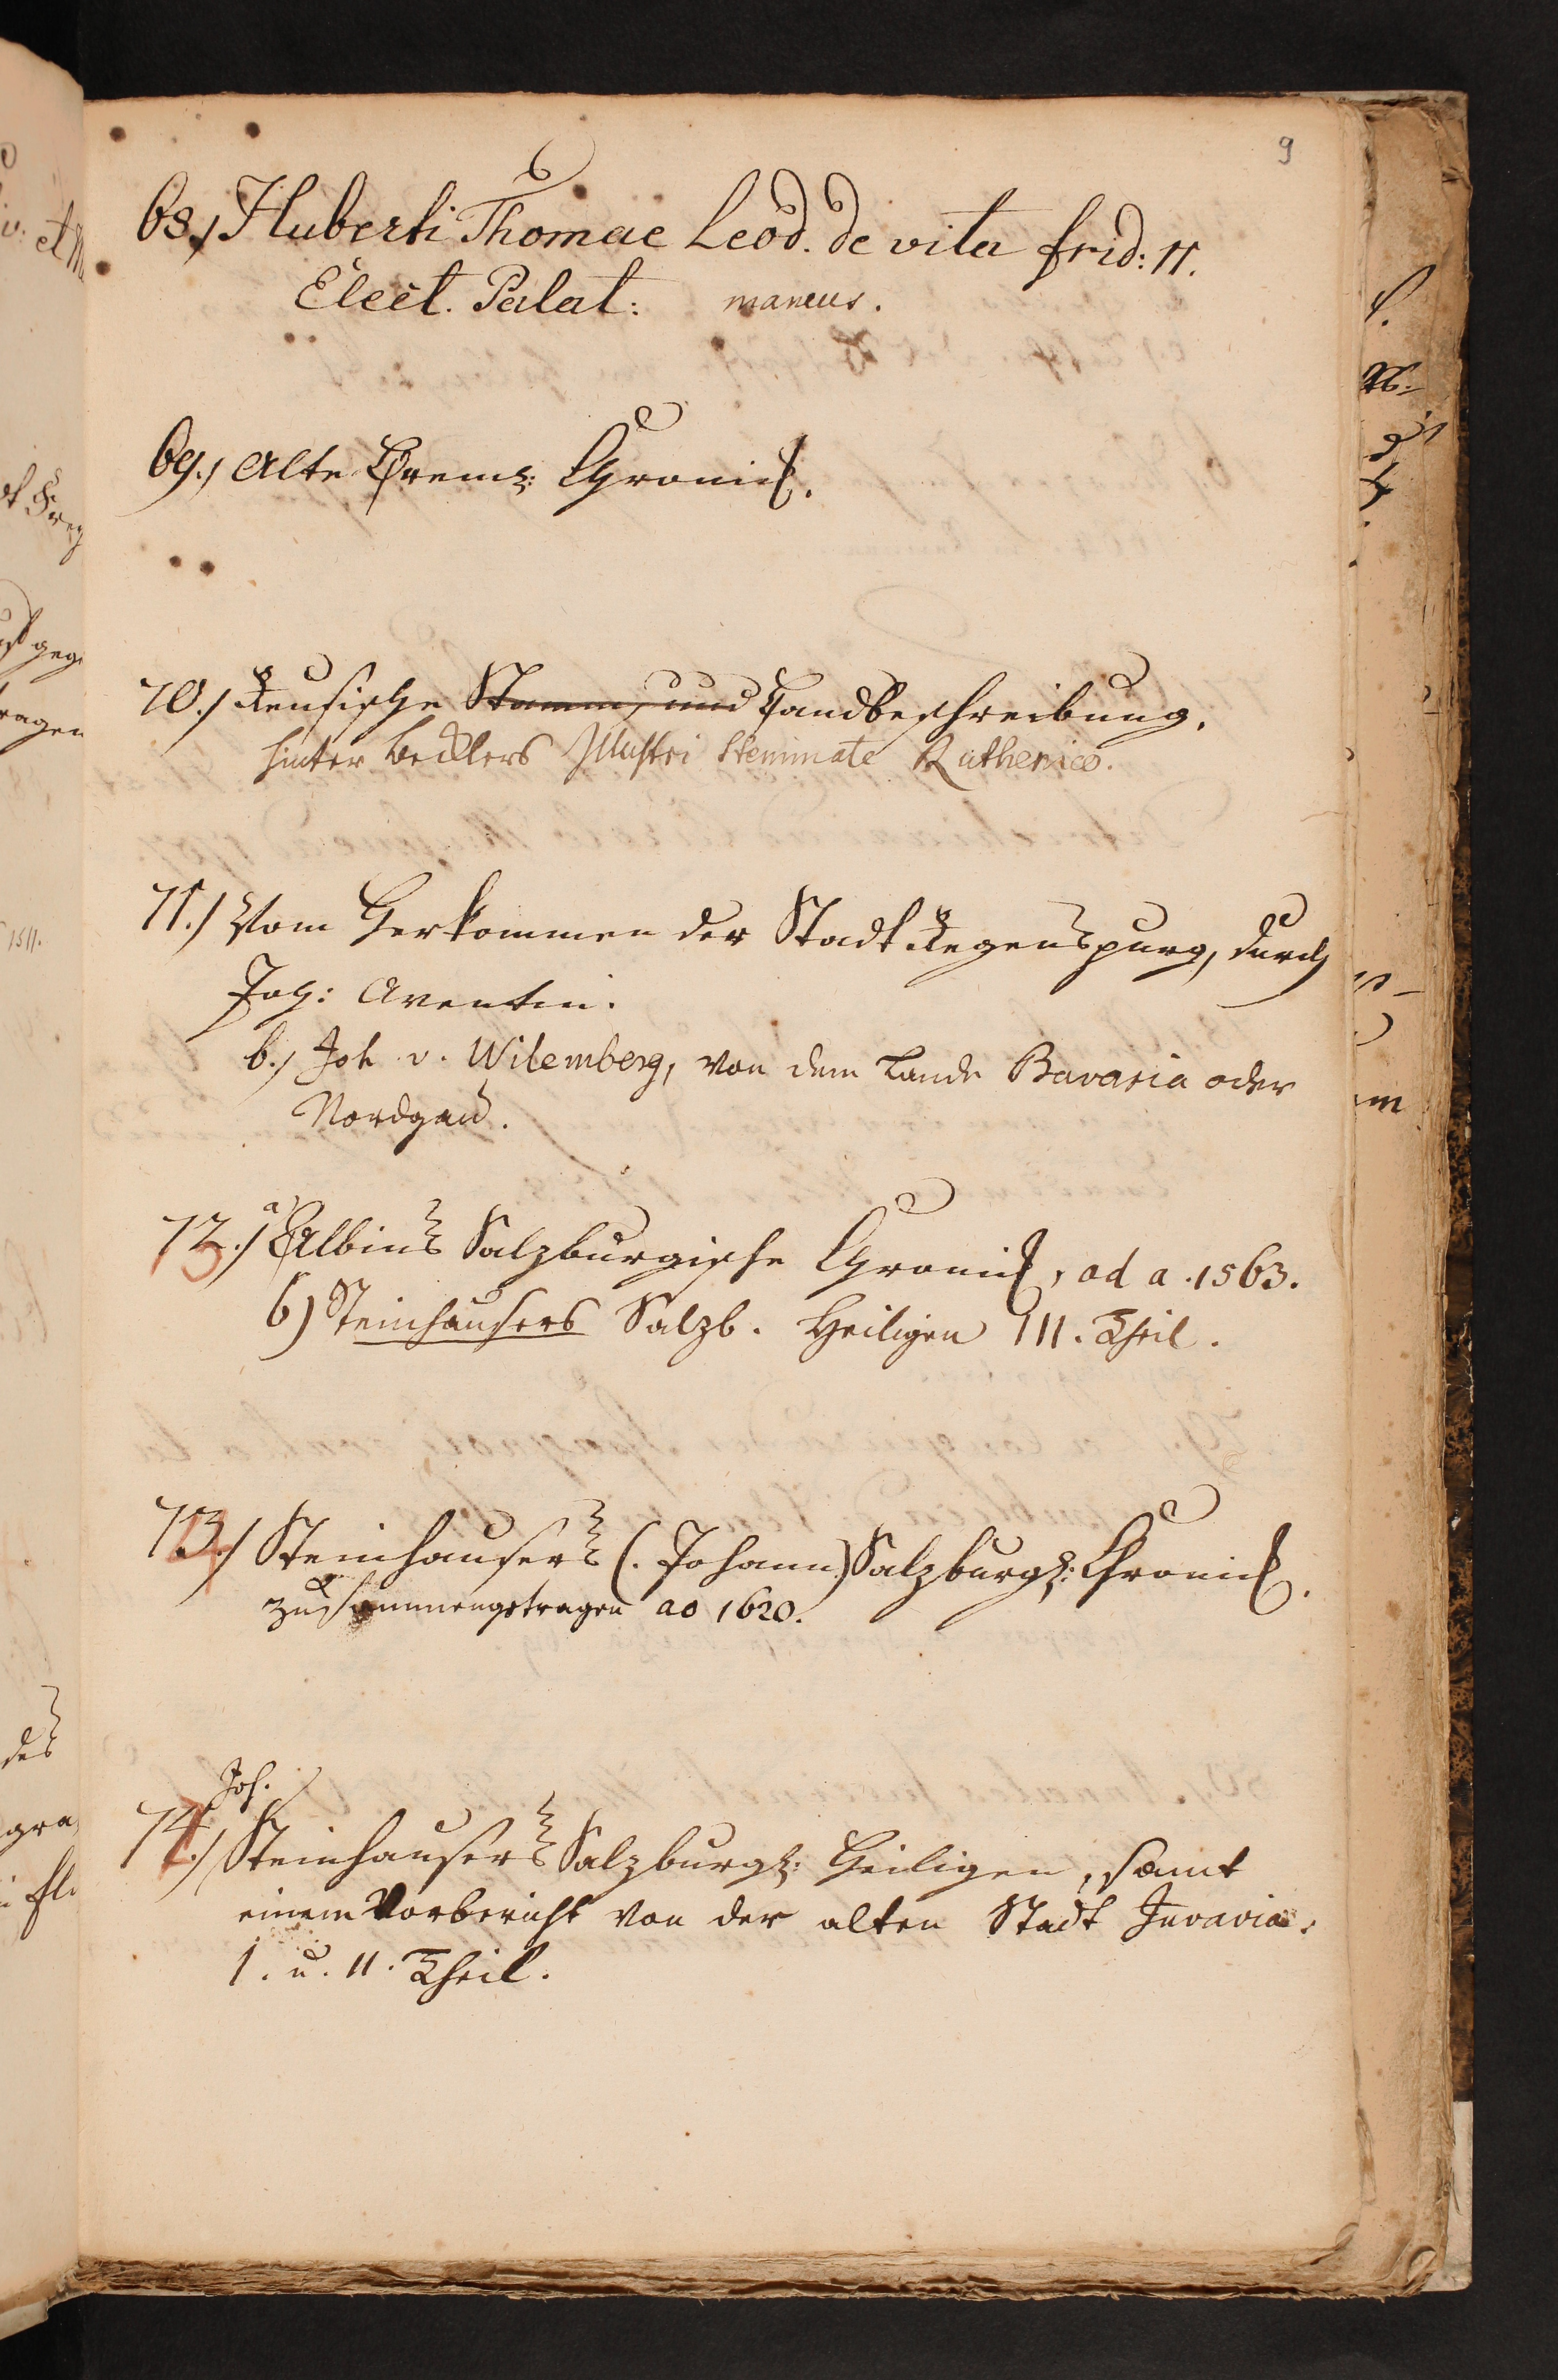 9
68.) Huberti Thomae Leod. de vita frid: II.
Elect. Palat: mancus.
69.) Alte Chronick.
70.) Reusische Stamm, und Landbeschreibung.
hinter Becklers Illustri Stemmate Ruthenico.
71.) Vom Herkommen der Stadt Regenspurg, durch
Joh: Aventin.
b.) Joh v. Wilemberg, von dem Lande Bavaria oder
Nordgau.
72.) a) Albins Salzburgische Chronick, ad a. 1563.
b) Steinhausers Salzb. Heiligen III. Theil.
73.) Steinhausers (. Johann) Salzburg: Chronick.
zusammengetragen ao 1620.
Joh.
74.) Steinhausers Salzburg: Heiligen, samt
einem Vorbericht von der alten Stadt Juvavia.
I. u. II. Theil.